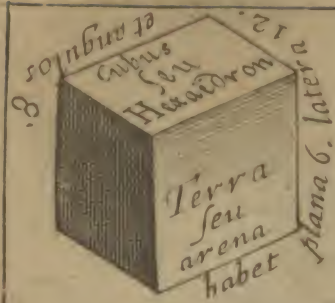 Cubus
seu
Hexaëdron
Terra
seu
arena
habet
plana 6. latera 12.
et angulos
8.